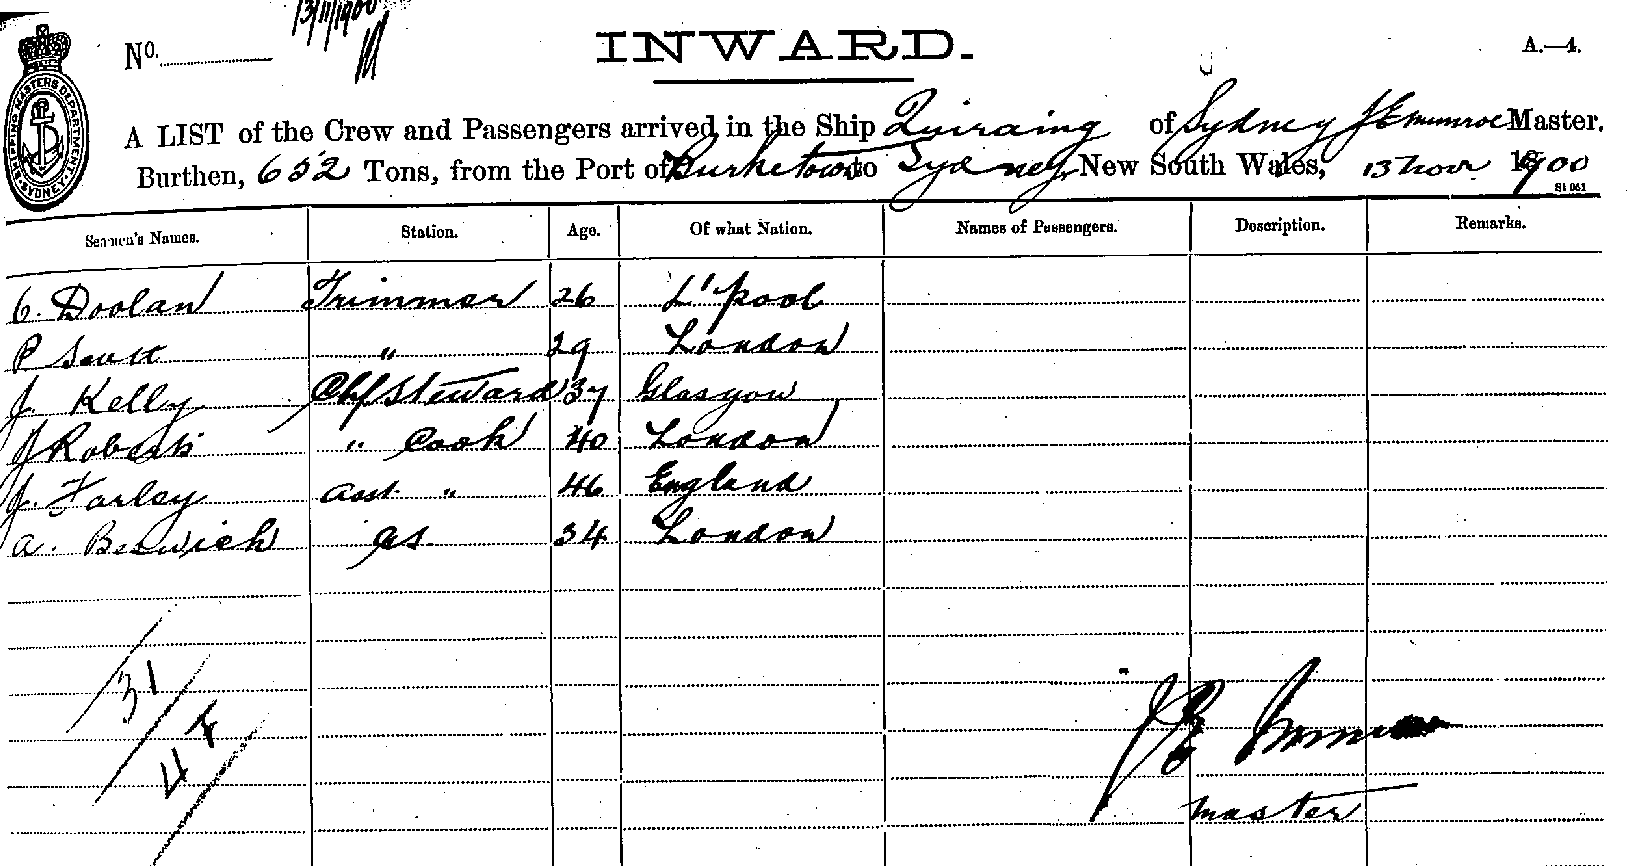 13/11/1900
No.
INWARD.
A.—4.
SHIPPING MASTERS DEPARTMENT. SYDNEY.
A LIST of the Crew and Passengers arrived in the Ship Quiraing of Sydney J E Munroe Master.
Burthen, 652 Tons, from the Port of Burketown to Sydney, New South Wales, 13 Nov 1900
Seamen's Names. Station. Age. Of what Nation. Names of Passengers. Description. Remarks.
C. Doolan Trimmer 26 L'pool
P Scott " 29 London
J. Kelly Chf Steward 37 Glasgow
J Roberts " Cook 40 London
J. Farley asst " 46 England
a. Beswick as 34 London
31
44
J E Munroe
master